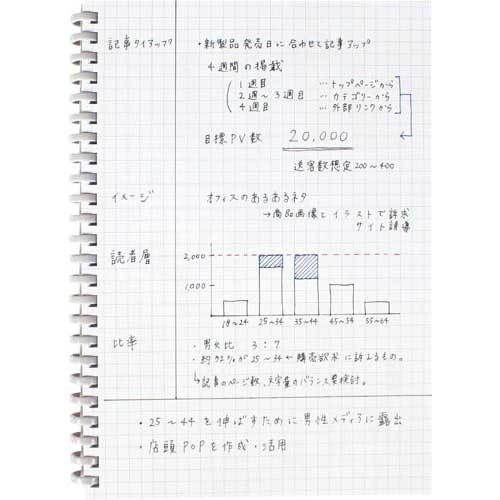 記事タイアップ
・新製品発売日に合わせて記事アップ
4週間の掲載
1週目 …トップページから
2週〜3週目 …カテゴリーから
4週目 …外部リンクから
目標PV数 20,000
送客数想定200〜400
イメージ
オフィスのあるあるネタ
→商品画像とイラストで訴求
サイト誘導
読者層
2,000
1,000
18〜24 25〜34 35〜44 45〜54 55〜64
比率
・男女比 3:7
・約92%が25〜34←購売欲求に訴えるもの。
↳記事のページ数、文字量のバランス要検討。
・25〜44を伸ばすために男性メディアに露出
・店頭POPを作成・活用